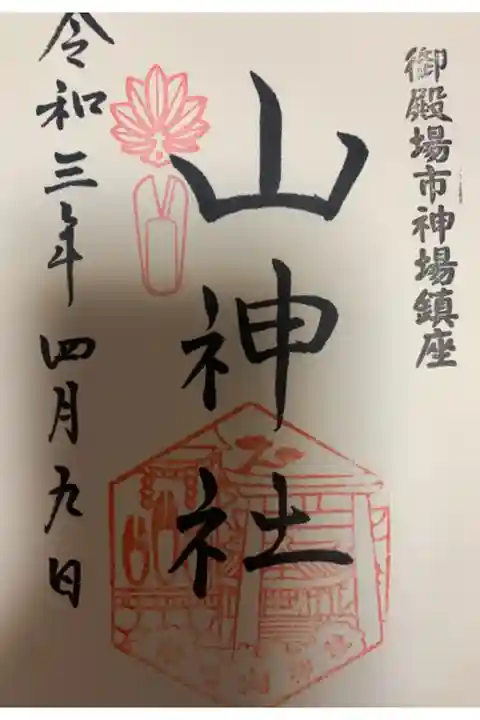 御殿場市神場鎮座
山神社
令和三年四月九日